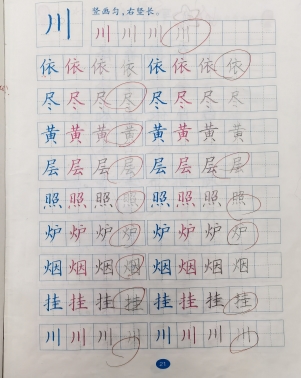 川 竖画匀，右竖长。
川 川 川 川
依 依 依 依 依 依 依 依
尽 尽 尽 尽 尽 尽 尽 尽
黄 黄 黄 黄 黄 黄 黄 黄
层 层 层 层 层 层 层 层
照 照 照 照 照 照 照 照
炉 炉 炉 炉 炉 炉 炉 炉
烟 烟 烟 烟 烟 烟 烟 烟
挂 挂 挂 挂 挂 挂 挂 挂
川 川 川 川 川 川 川 川
21